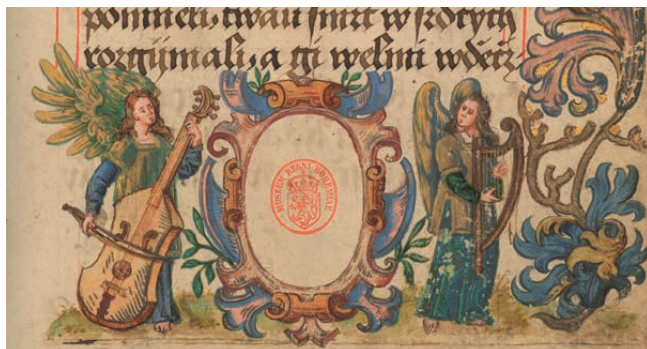 pomneli, twau smrt w srdcých
rozgijmali, a gi welmi wděcž-
MUSEUM REGNI BOHEMIAE